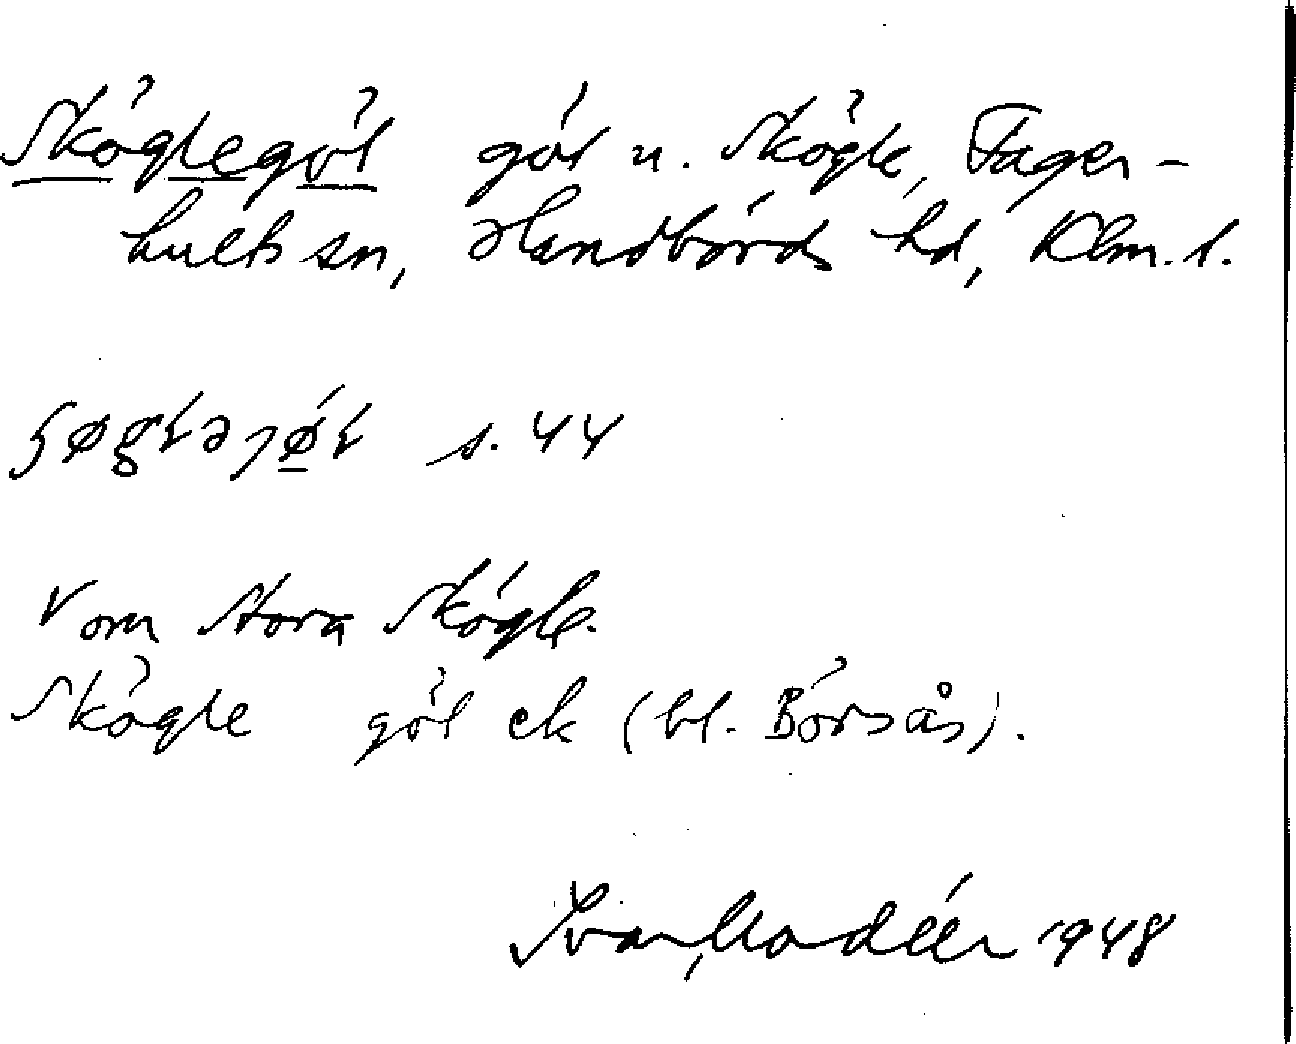 Sköglegöl göl u. Skögle, Fager-
hults sn, Handbörds hd, Klm. l.
s. 44
Vom Stora Skögle.
Skögle göl ek (bl. Börsås).
Ivar Modéer 1948